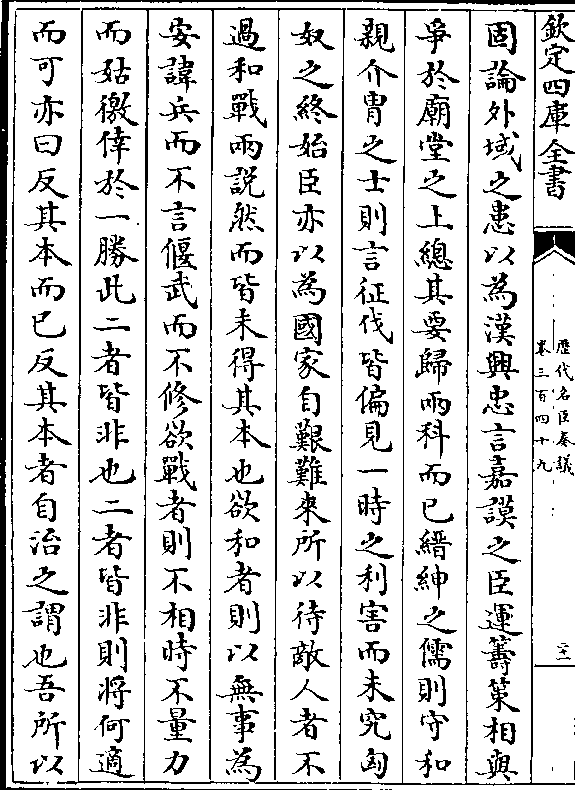 欽定四庫全書
歷代名臣奏議
卷三百四十九
二十一
固論外域之患以為漢興忠言嘉謨之臣運籌策相與
爭於廟堂之上總其要歸兩科而已縉紳之儒則守和
親介冑之士則言征伐皆偏見一時之利害而未究匈
奴之終始臣亦以為國家自艱難來所以待敵人者不
過和戰兩説然而皆未得其本也欲和者則以無事為
安諱兵而不言偃武而不修欲戰者則不相時不量力
而姑徼倖於一勝此二者皆非也二者皆非則將何適
而可亦曰反其本而已反其本者自治之謂也吾所以